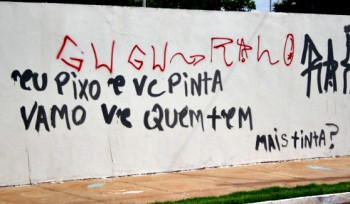 eu PiXo e Vc PINTA
VAMO Ve QUEM tEM
MAIS tINtA?